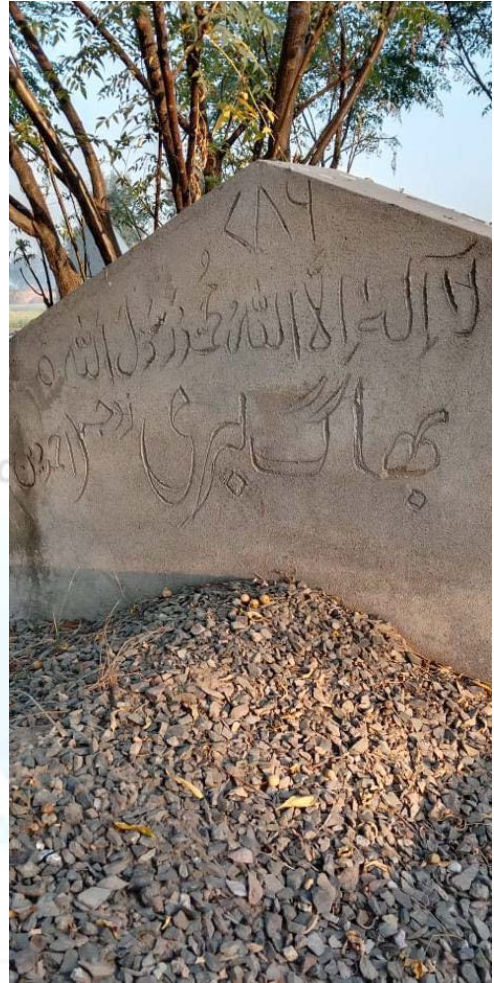 ٧٨٦
لا اِلٰہَ اِلَّا اللّٰہُ مُحَمَّدٌ رَّسُوْلُ اللّٰہِ ○
بھاگ پری زوجہ